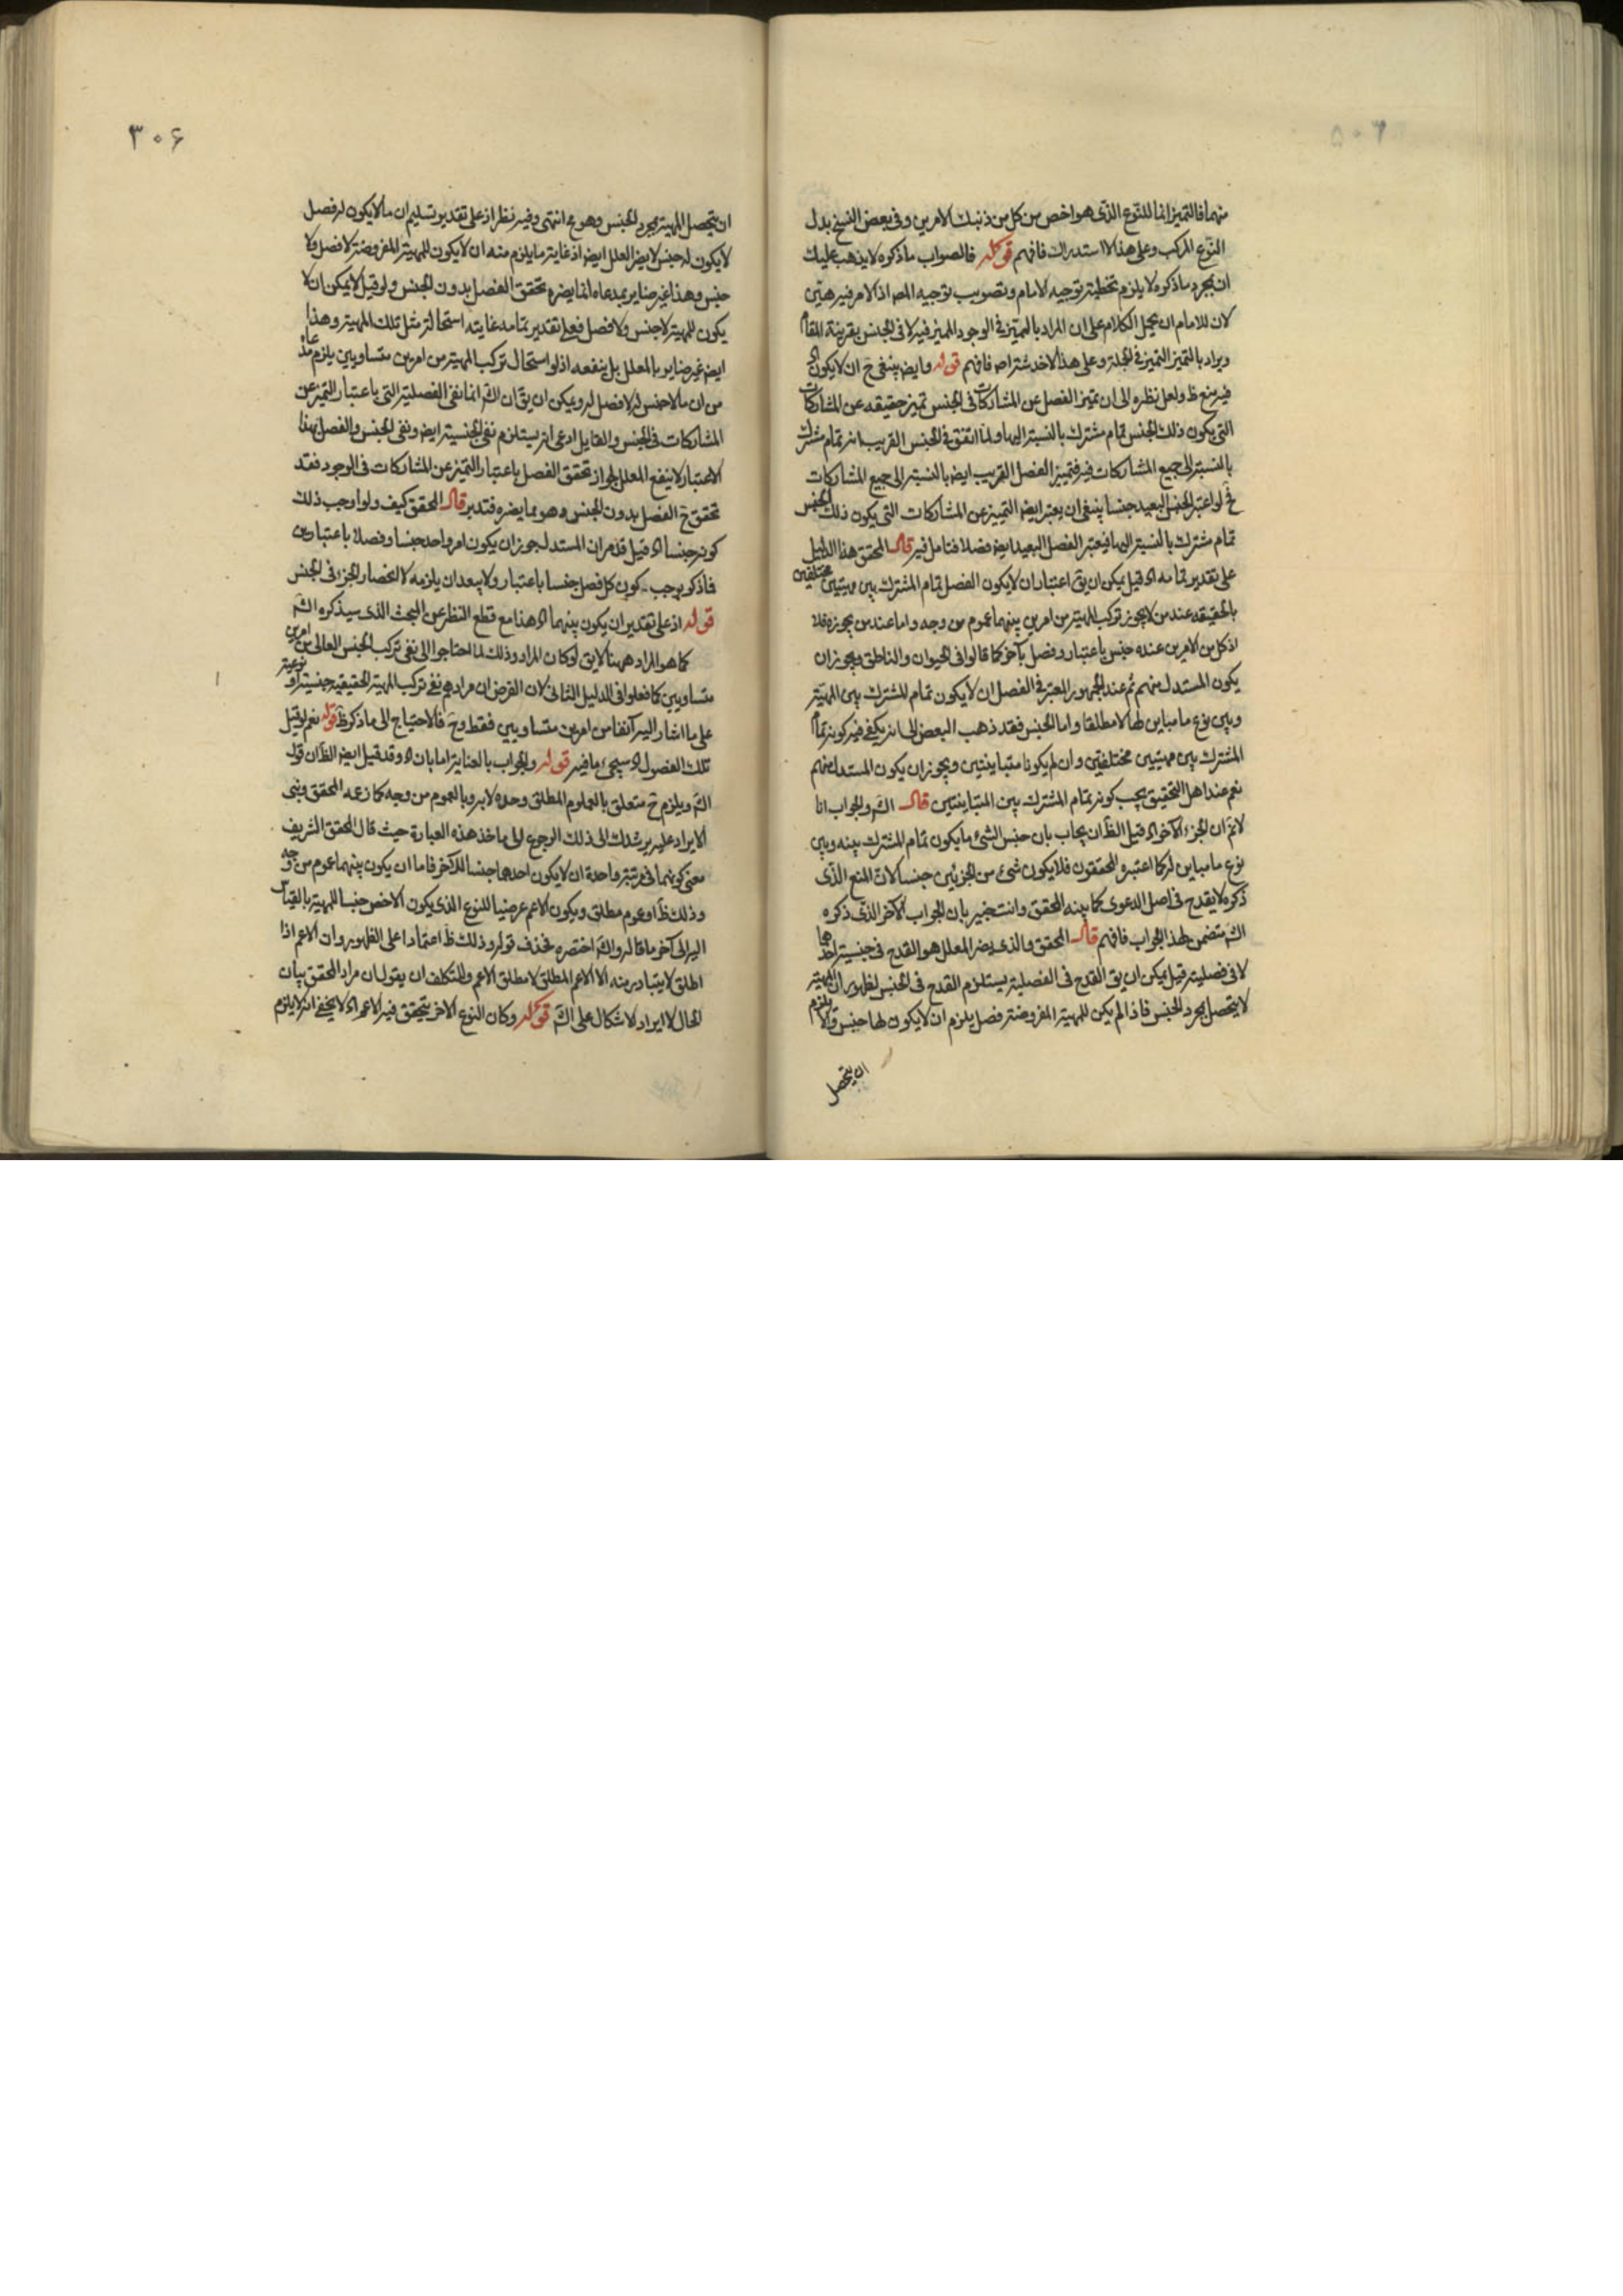 منهما فالتميز انما للنوع الذى هو اخص من كل من ذينك الامرين وفى بعض النسخ بدل
النوع المركب وعلى هذا لا استدراك فافهم قوله فالصواب ما ذكره لا يذهب عليك
ان بمجرد ما ذكره لا يلزم تخطئة توجيه الامام وتصويب توجيه المص اذ الامر فيه هين
لان للامام ان يحمل الكلام على ان المراد بالمميز فى الوجود المميز فيه لا فى الجنس بقرينة المقام
ويراد بالتميز التميز فى الجملة وعلى هذا لا خدشة اصه فافهم قوله وايضه ينبغى ح ان لا يكون اه
فيه منع ظ ولعل نظره الى ان تميز الفصل عن المشاركات فى الجنس تميز حقيقه عن المشاركات
التى يكون ذلك الجنس تمام مشترك بالنسبة اليها ولما اتفق فى الجنس القريب انه تمام مشترك
بالنسبة الى جميع المشاركات فيه فتمييز الفصل القريب ايضه بالنسبة الى جميع المشاركات
فح لو اعتبر الجنس البعيد جنسا ينبغى ان يعتبر ايضه التمييز عن المشاركات التى يكون ذلك الجنس
تمام مشترك بالنسبة اليها فيعتبر الفصل البعيد ايضه فصلا فتامل فيه قال المحقق هذا الدليل
على تقدير تمامه اه قيل يمكن ان يق اعتبار ان لا يكون الفصل تمام المشترك بين مهيتين مختلفين
بالحقيقه عند من لا يجوز تركب المهية من امرين بينهما عموم من وجه واما عند من يجوزه فلا
اذ كل من الامرين عنده جنس باعتبار وفصل بآخر كما قالوا فى الحيوان والناطق ويجوز ان
يكون المستدل منهم ثم عند الجمهور المعتبر فى الفصل ان لا يكون تمام المشترك بين المهية
وبين نوع ما مباين لها لا مطلقا واما الجنس فقد ذهب البعض الى انه يكفى فيه كونه تمام
المشترك بين مهيتين مختلفتين وان لم يكونا متباينتين ويجوز ان يكون المستدل منهم
نعم عند اهل التحقيق يجب كونه تمام المشترك بين المتباينتين قال الش والجواب انا
لانم ان الجزء الآخر اه قيل الظ ان يجاب بان جنس الشئ ما يكون تمام المشترك بينه وبين
نوع ما مباين له كما اعتبره المحققون فلا يكون شئ من الجزئين جنسا لان المنع الذى
ذكره لا يقدح فى اصل الدعوى كما بينه المحقق وانت خبير بان الجواب الآخر الذى ذكره
الش متضمن لهذا الجواب فافهم قال المحقق والذى يضر المعلل هو القدح فى جنسية احدهما
لا فى فصليته قيل يمكن ان يق القدح فى الفصلية يستلزم القدح فى الجنس لظهور ان المهية
لا يتحصل بمجرد الجنس فاذا لم يكن للمهية المفروضة فصل يلزم ان لا يكون لها جنس والا يلزم
ان يتحصل
٣٠٦
ان يتحصل المهية بمجرد الجنس وهو مح انتهى وفيه نظر اذ على تقدير تسليم ان ما لا يكون له فصل
لا يكون له جنس لا يضر المعلل ايضه اذ غاية ما يلزم منه ان لا يكون للمهية المفروضة لا فصل ولا
جنس وهذا غير ضاير بمدعاه انما يضره تحقق الفصل بدون الجنس ولو قيل لا يمكن ان لا
يكون للمهية لا جنس ولا فصل فعلى تقدير تمامه غايته استحالة مثل تلك المهية وهذا
ايضه غير ضاير بالمعلل بل ينفعه اذ لو استحال تركيب المهية من امرين متساويين يلزم مدعاه
من ان ما لا جنس له لا فصل له ويمكن ان يق ان الش انما نفى الفصلية التى باعتبار التميز عن
المشاركات فى الجنس والقايل ادعى انه يستلزم نفى الجنسية ايضه ونفى الجنس والفصل بهذا
الاعتبار لا ينفع المعلل لجواز تحقق الفصل باعتبار التميز عن المشاركات فى الوجود فقد
تحقق ح الفصل بدون الجنس وهو مما يضره فتدبر قال المحقق كيف ولو اوجب ذلك
كونه جنسا اه قيل قد مر ان المستدل جوز ان يكون امر واحد جنسا وفصلا باعتبارين
فما ذكره يوجب كون كل فصل جنسا باعتبار ولا يبعد ان يلزمه لانحصار الجزء فى الجنس
قوله اذ على تقدير ان يكون بينهما اه هذا مع قطع النظر عن البحث الذى سيذكره الش
كما هو المراد ههنا لا يق لو كان المراد وذلك لما احتاجوا الى نفى تركب الجنس العالى من امرين
متساويين كما فعلوا فى الدليل الثانى لان الفرض ان مرادهم نفى تركب المهية الحقيقية جنسية او نوعية
على ما اشار اليه آنفا من امرين متساويين فقط وح فالاحتياج الى ما ذكر ظ قوله نعم لو قيل
تلك الفصول اه سيجئ ما فيه قوله والجواب بالعناية اما بان اه وقد قيل ايضه الظ ان قول
الش ويلزم ح متعلق بالعموم المطلق وحده لا به وبالعموم من وجه كما زعمه المحقق وبنى
الايراد عليه يرشدك الى ذلك الرجوع الى ما خذ هذه العبارة حيث قال المحقق الشريف
معنى كونهما فى مرتبة واحدة ان لا يكون احدهما جنسا للآخر فاما ان يكون بينهما عموم من وجه
وذلك ظ او عموم مطلق ويكون الاعم عرضيا للنوع الذى يكون الاخص جنسا للمهية بالقياس
اليه الى آخر ما قاله والش اختصره بحذف قوله وذلك ظ اعتمادا على الظهور وان الاعم اذا
اطلق لا يتبادر منه الا الاعم المطلق لا مطلق الاعم وللمتكلف ان يقول ان مراد المحقق بيان
الحال لا ايراد الاشكال على الش قوله وكان النوع الاخر يتحقق فيه الاعم اه لا يخفى انه لا يلزم